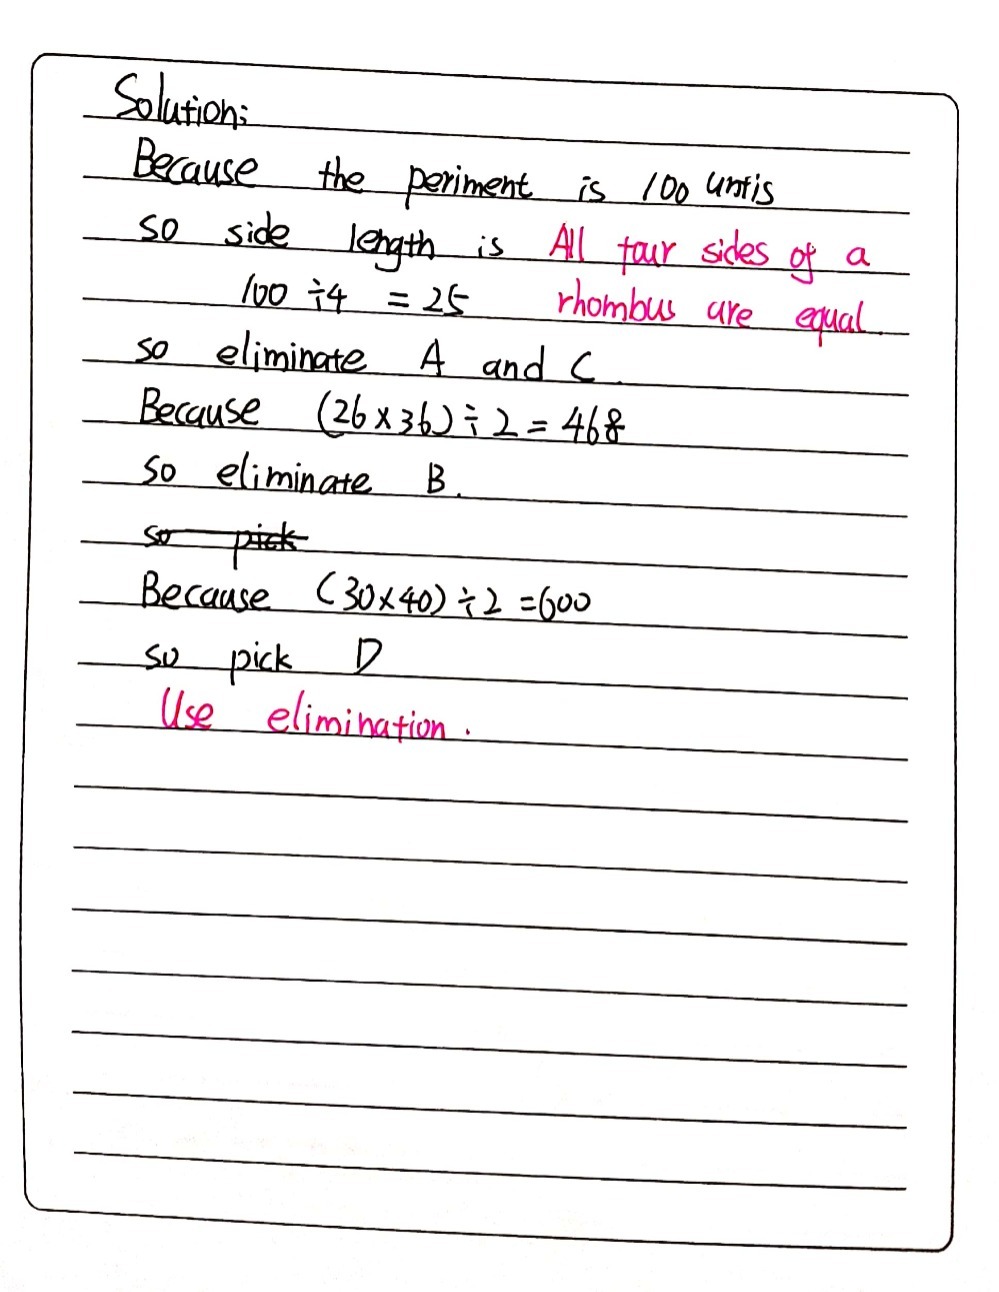 Solution:
Because the periment is 100 untis
so side length is All four sides of a
100 ÷4 = 25 rhombus are equal.
so eliminate A and C.
Because (26×36)÷2=468
so eliminate B.
so pick
Because (30×40)÷2=600
so pick D
Use elimination.